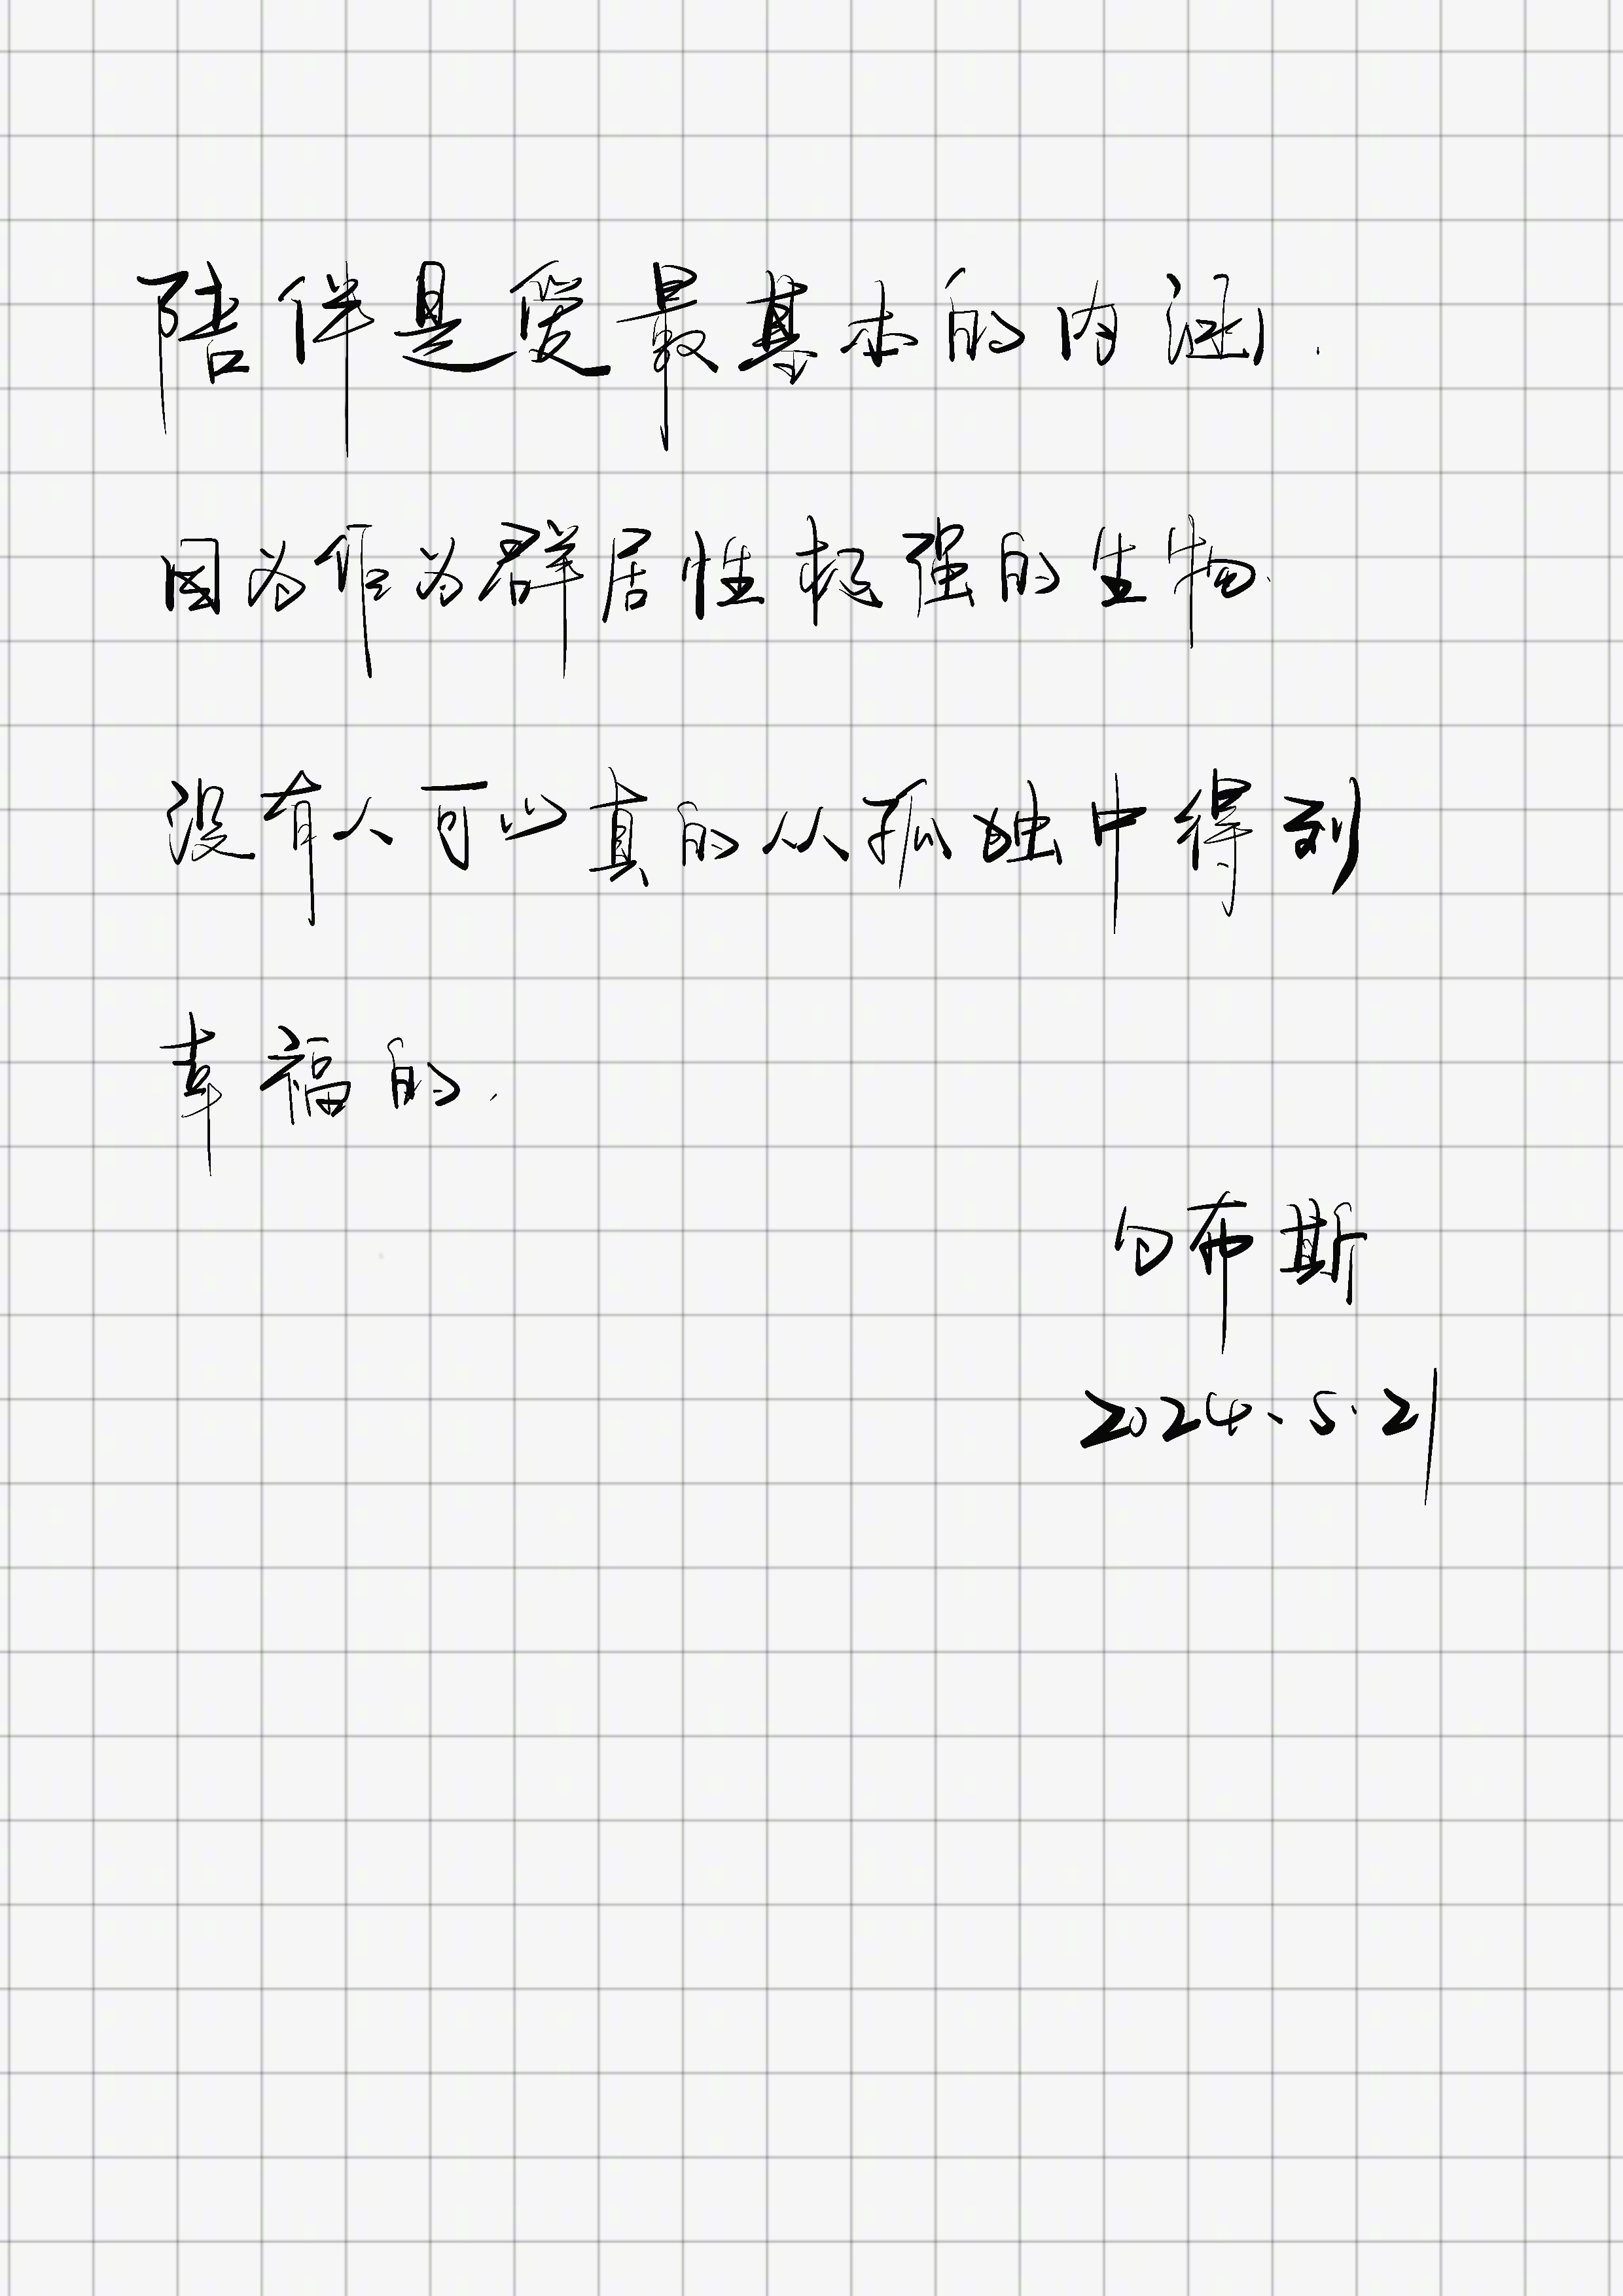 陪伴是爱最基本的内涵.
因为作为群居性极强的生物.
没有人可以真的从孤独中得到
幸福的.
白布斯
2024.5.21